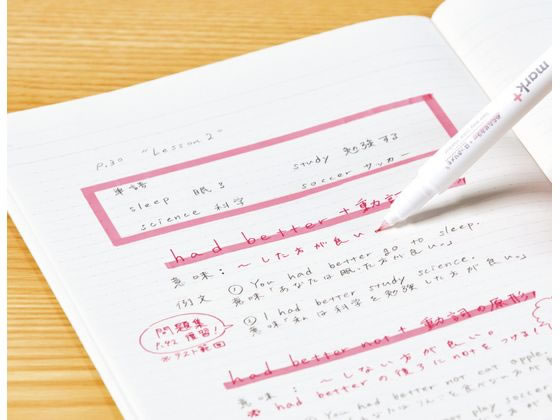 P.30 "Lesson 2"
単語
sleep 眠る study 勉強する
science 科学 soccer サッカー
had better + 動詞
意味：〜した方が良い
例文 ① You had better go to sleep.
意味「あなたは眠った方が良い。」
② I had better study science.
意味「私は科学を勉強した方が良い。」
問題集
P.42 復習！
※テスト範囲
had better not + 動詞の原形
意味：〜しない方が良い。
※ had better の後ろに not をつける
You had better not eat apple
mark+